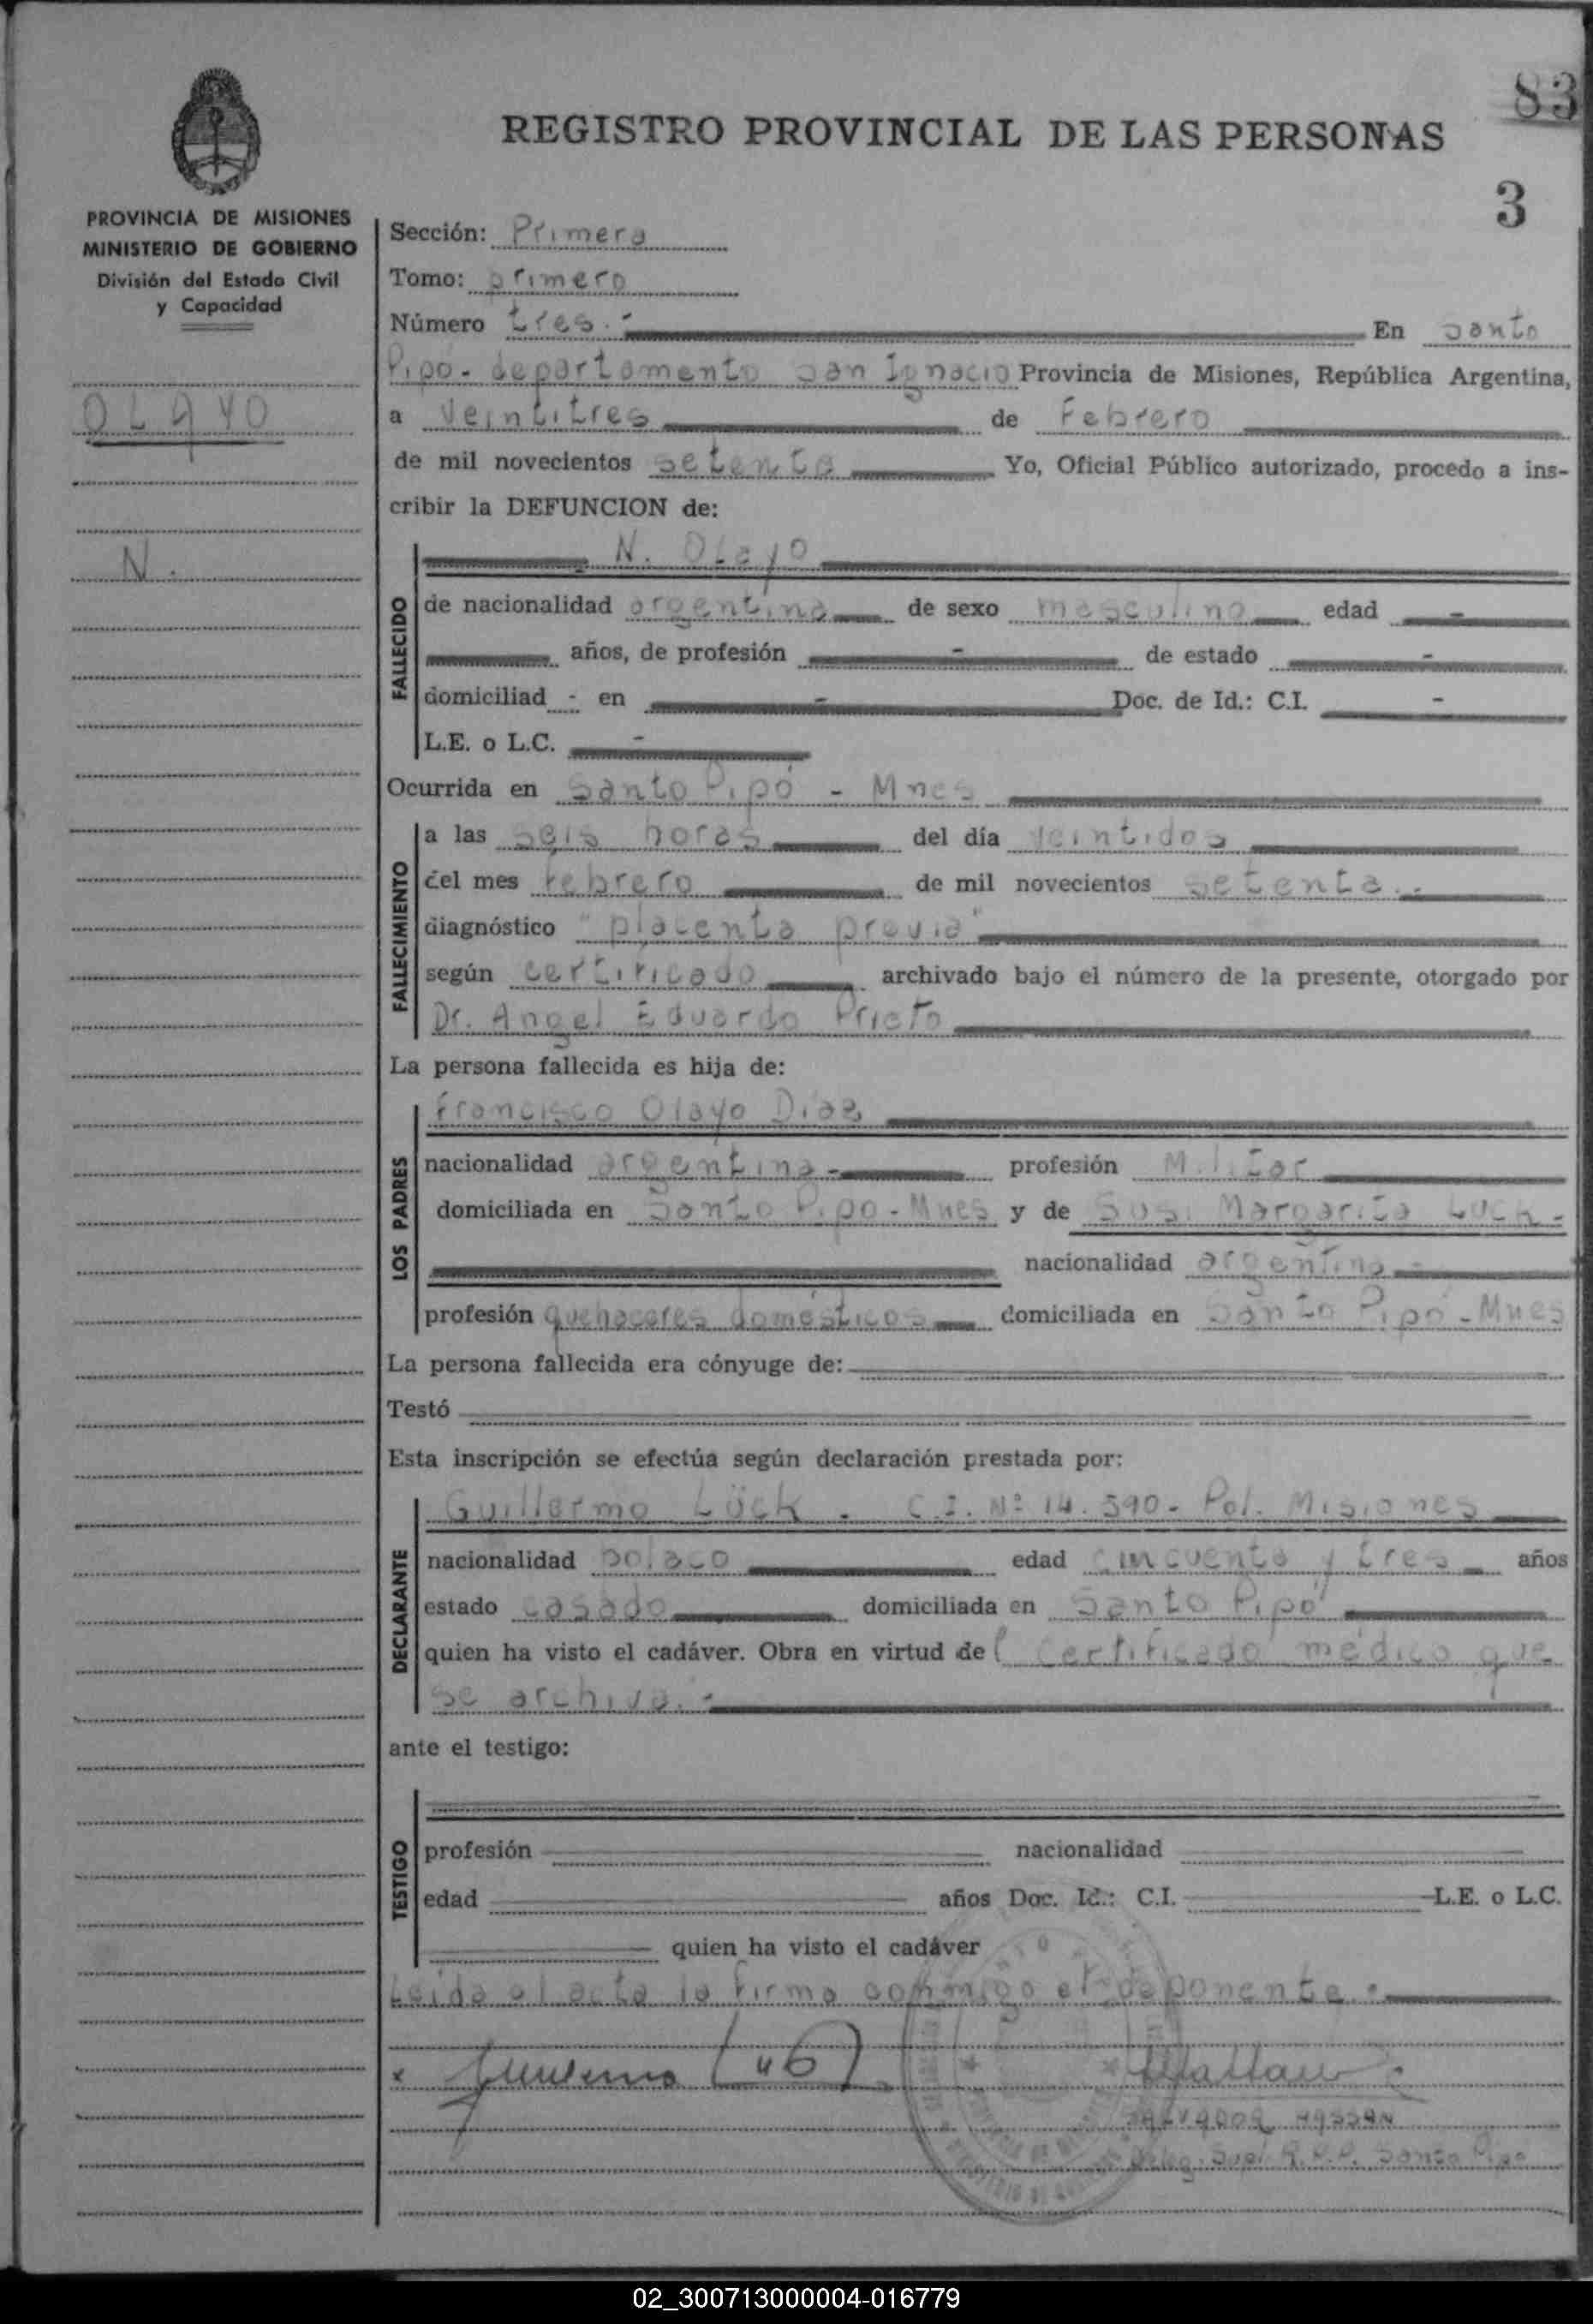 83
REGISTRO PROVINCIAL DE LAS PERSONAS
3
PROVINCIA DE MISIONES
MINISTERIO DE GOBIERNO
División del Estado Civil
y Capacidad
OLAYO
N.
Sección: Primera
Tomo: primero
Número tres.- En Santo
Pipó - departamento San Ignacio Provincia de Misiones, República Argentina,
a veintitres de Febrero
de mil novecientos setenta Yo, Oficial Público autorizado, procedo a ins-
cribir la DEFUNCION de:
N. Olayo
FALLECIDO
de nacionalidad argentina de sexo masculino edad -
años, de profesión - de estado -
domiciliad - en - Doc. de Id.: C.I. -
L.E. o L.C. -
Ocurrida en Santo Pipó - Mnes
FALLECIMIENTO
a las seis horas del día veintidos
del mes febrero de mil novecientos setenta.-
diagnóstico "placenta previa"
según certificado archivado bajo el número de la presente, otorgado por
Dr. Angel Eduardo Prieto
La persona fallecida es hija de:
LOS PADRES
Francisco Olayo Diaz
nacionalidad argentina- profesión Militar
domiciliada en Santo Pipo - Mnes y de Susi Margarita Luck -
nacionalidad argentina
profesión quehaceres domésticos domiciliada en Santo Pipó - Mnes
La persona fallecida era cónyuge de:
Testó
Esta inscripción se efectúa según declaración prestada por:
DECLARANTE
Guillermo Lück - C.I. Nº 14.590- Pol. Misiones
nacionalidad polaco edad cincuenta y tres años
estado casado domiciliada en Santo Pipó
quien ha visto el cadáver. Obra en virtud de certificado médico que
se archiva.-
ante el testigo:
TESTIGO
profesión nacionalidad
edad años Doc. Id.: C.I. L.E. o L.C.
quien ha visto el cadáver
Leida el acta la firma conmigo el deponente.-
SALVADOR HASSAN
Deleg. Supl. R.P.P. Santo Pipo
02_300713000004-016779